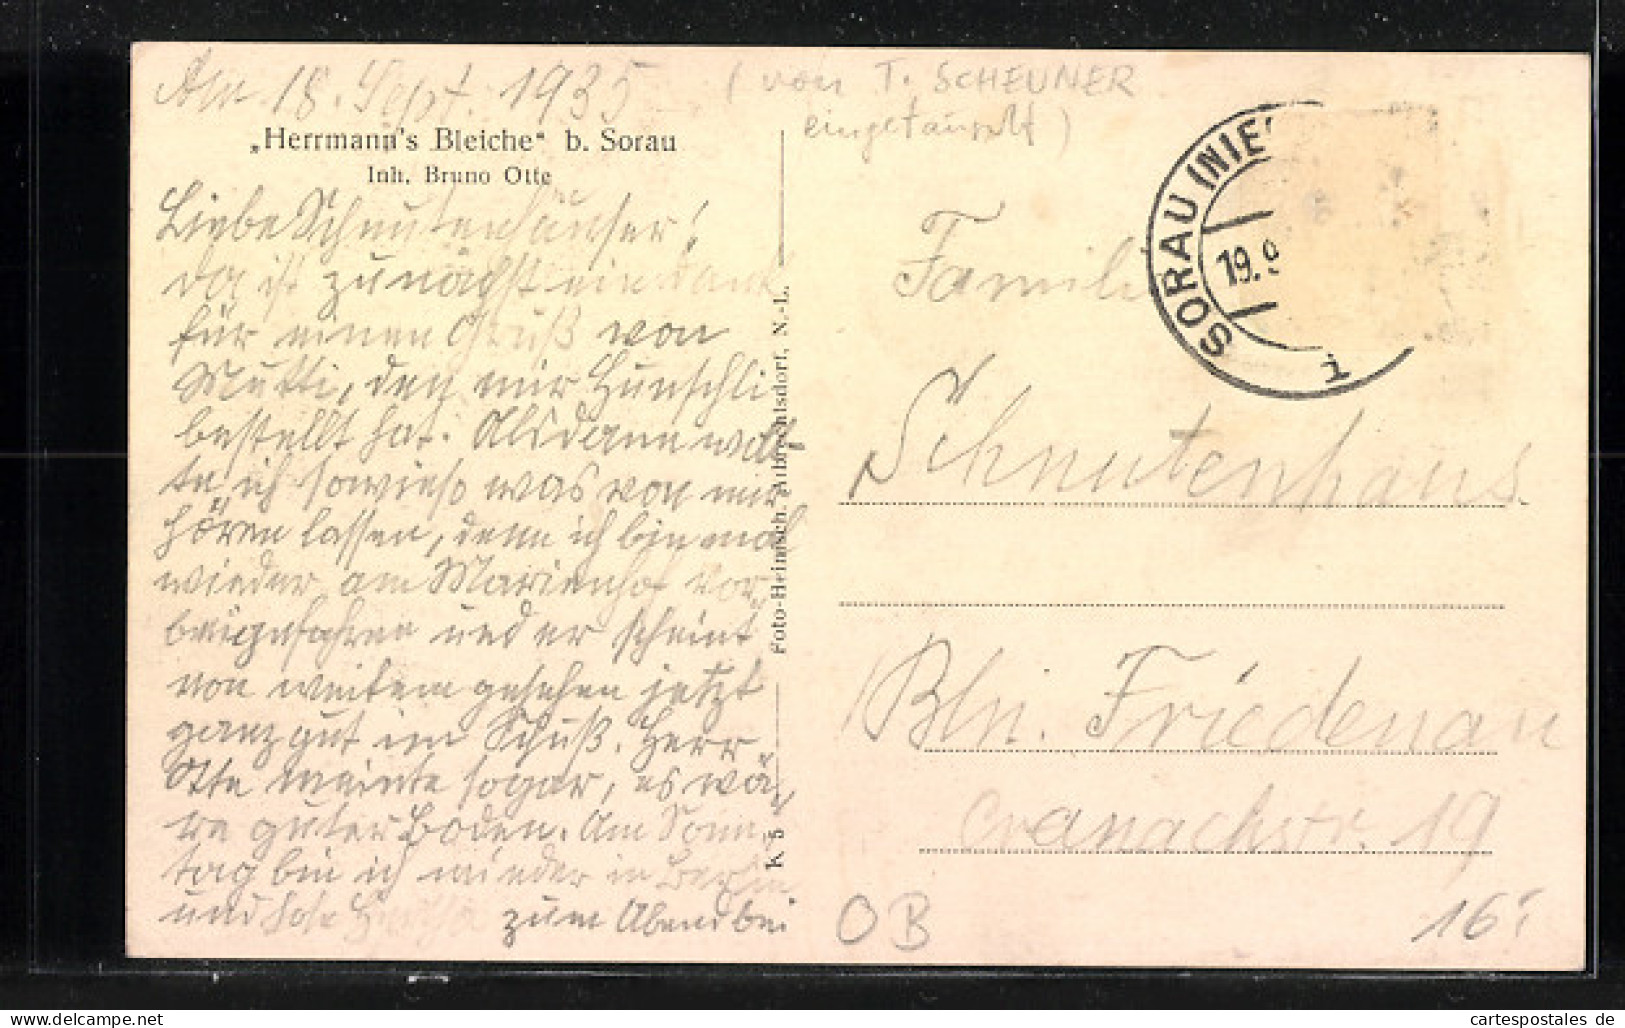 Am 18. Sept. 1935
(von T. SCHEUNER
eingetauscht)
„Herrmann's Bleiche“ b. Sorau
Inh. Bruno Otte
Liebe Schnutenhäuser!
da ist zunächst ein Dank
für einen Gruß von
Mutti, den mir Hunschli
bestellt hat. Alsdann woll-
te ich sowieso was von mir
hören lassen, denn ich bin mal
wieder am Marienhof vor-
beigefahren und er scheint
von weitem gesehen jetzt
ganz gut im Schuß. Herr
Otte meinte sogar, es wä-
re guter Boden. Am Sonn-
tag bin ich wieder in Berlin
und zum Abend bei
Foto-Heinisch, Albrechtsdorf, N.-L.
K 5
SORAU (NIE
19.9
i
Famili
Schnutenhaus
Bln. Friedenau
Cranachstr. 19
OB
16
cartespostales de